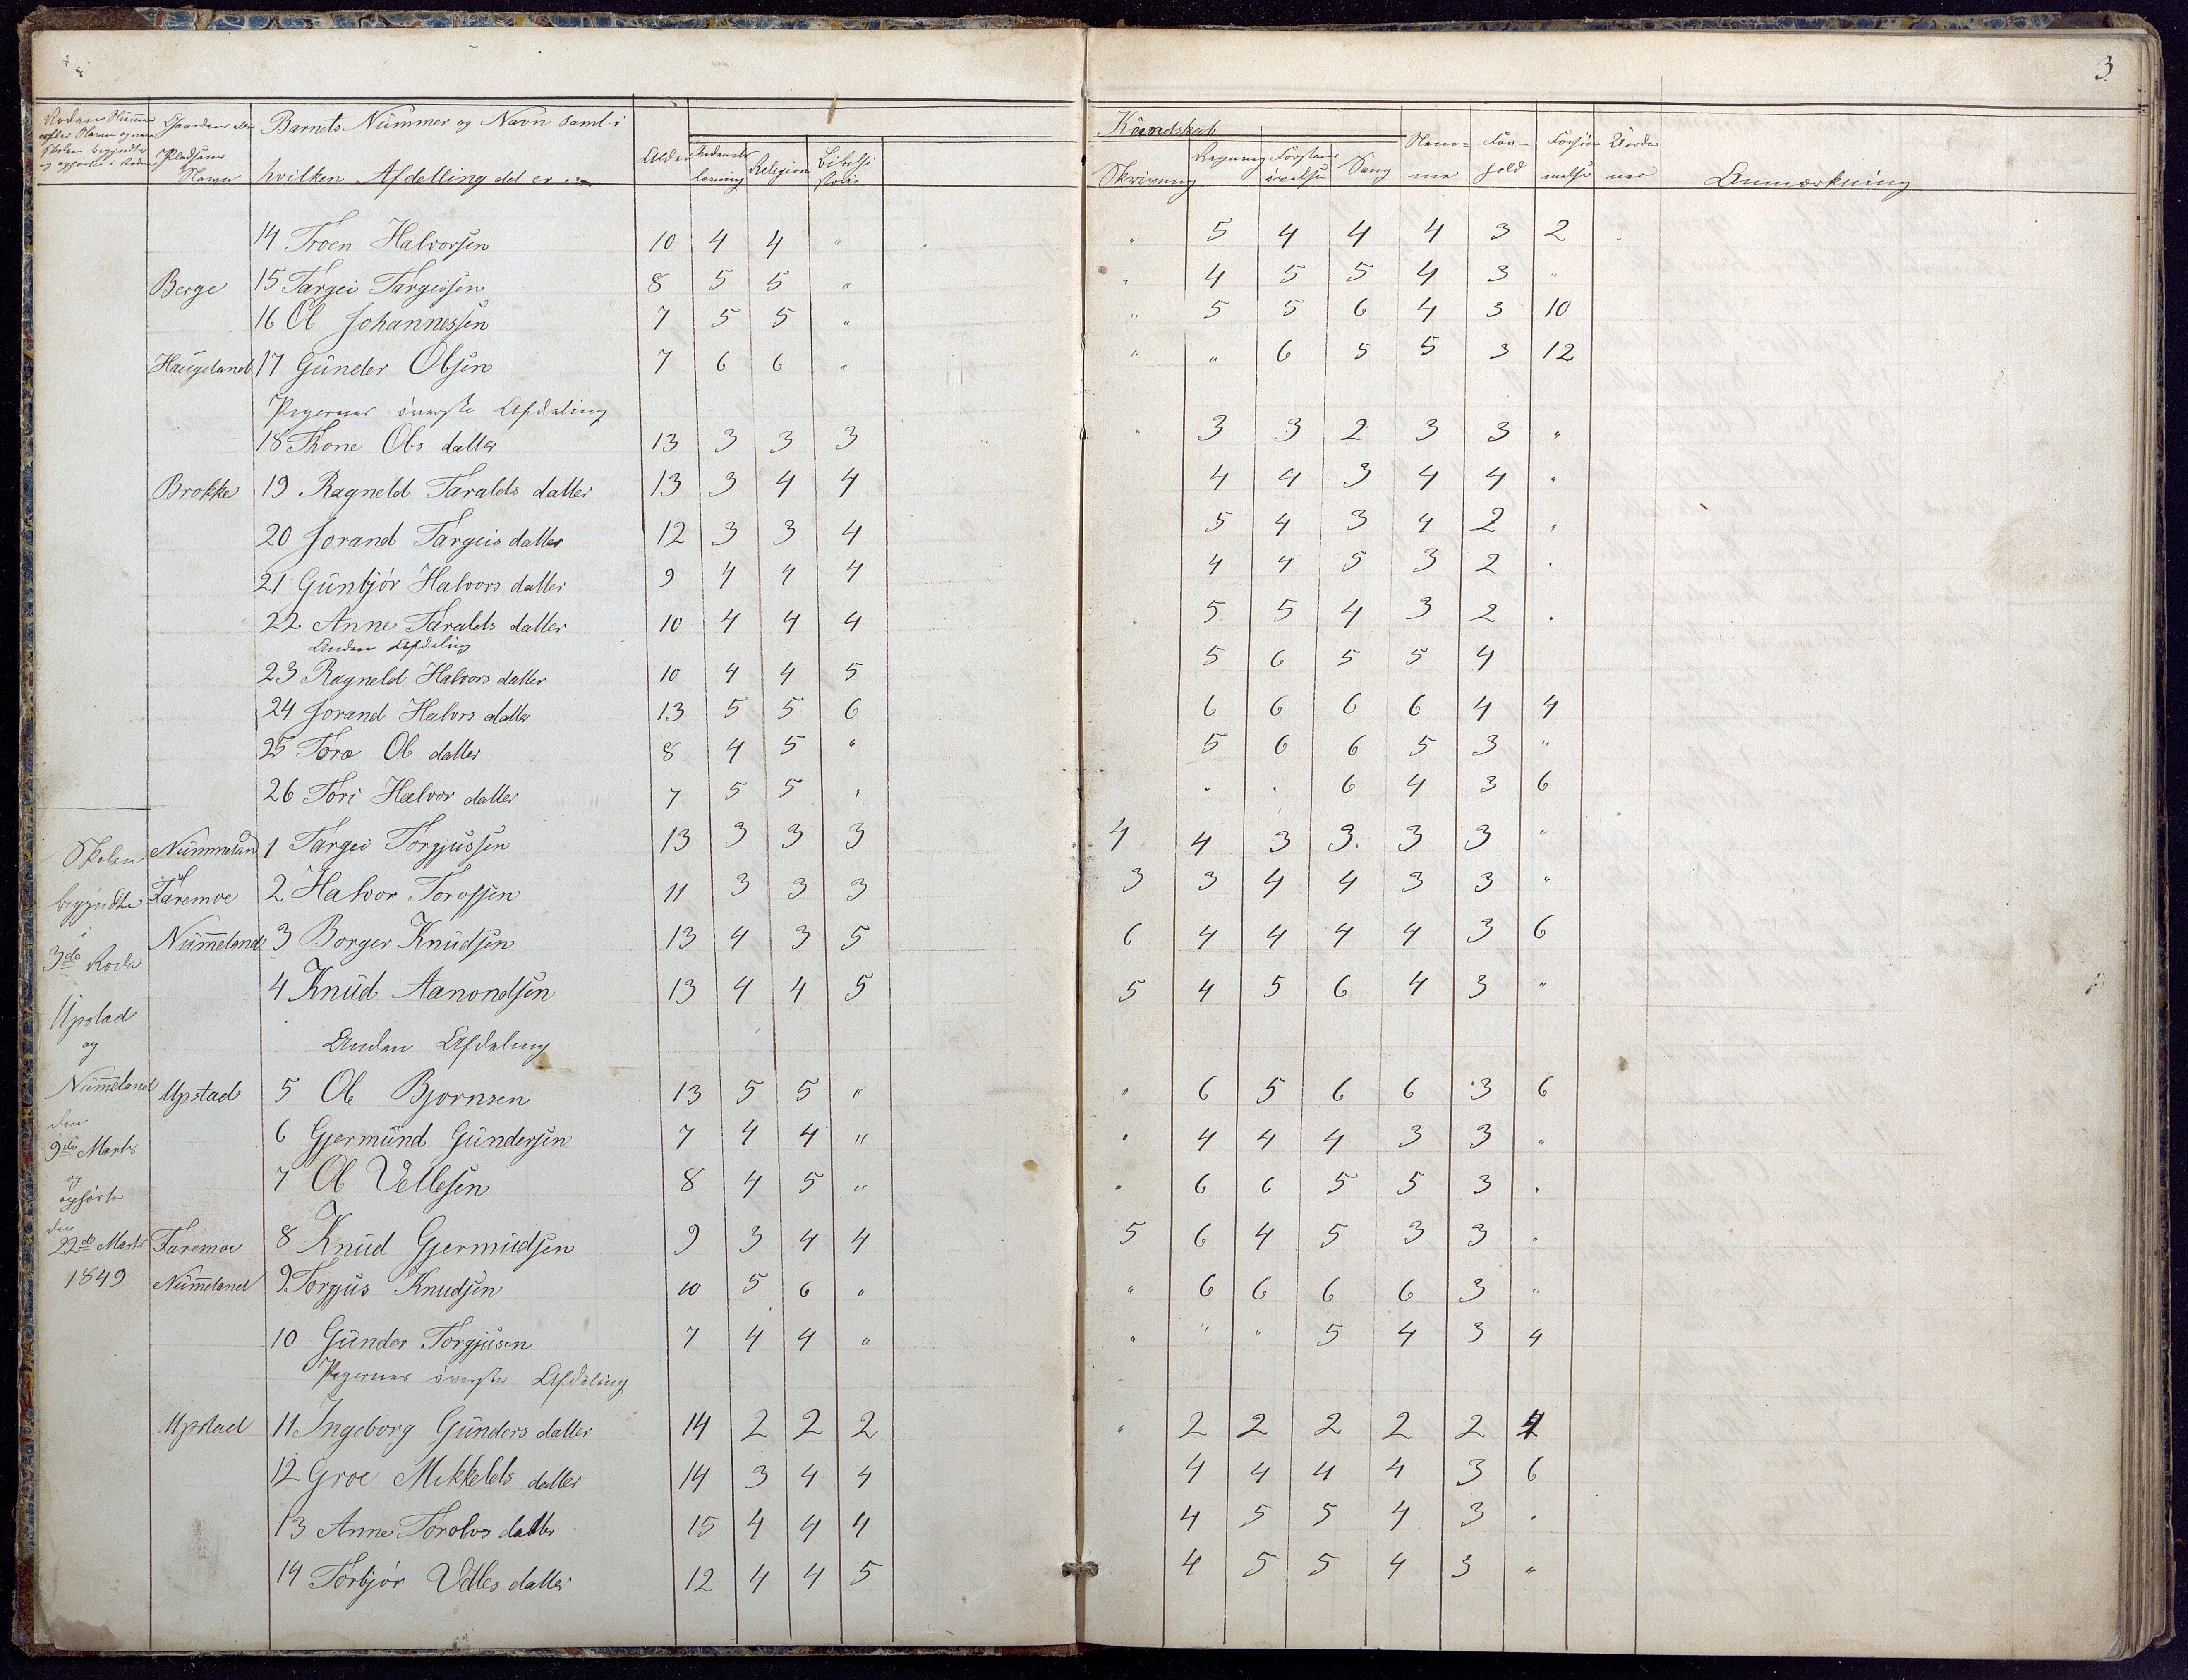 3
Barnets Nummer og Navn samt i
hvilken Afdelling det er
Gaardens
Pladsens
Navn
Alder
Religion
Kundskab
Skrivning
Regning
Sang
Nem=
me
For=
hold
Anmærkning
14 Troen Halvorsen 10 4 4 " " 5 4 4 4 3 2
Berge 15 Targei Targeisen 8 5 5 " " 4 5 5 4 3 "
16 Ol Johannessen 7 5 5 " " 5 5 6 4 3 10
Haugeland 17 Gunder Olsen 7 6 6 " " " 6 5 5 3 12
Pigernes øverste Afdeling
18 Thone Ols datter 13 3 3 3 " 3 3 2 3 3 "
Brokke 19 Ragneld Taralds datter 13 3 4 4 4 4 3 4 4 "
20 Jorand Targeis datter 12 3 3 4 5 4 3 4 2 "
21 Gunbjør Halvors datter 9 4 4 4 4 4 5 3 2 "
22 Anne Taralds datter 10 4 4 4 " 5 5 4 3 2 "
Anden Afdeling
23 Ragneld Halvors datter 10 4 4 5 5 6 5 5 4
24 Jorand Halvors datter 13 5 5 6 6 6 6 6 4 4
25 Tora Ol datter 8 4 5 " 5 6 6 5 3 "
26 Tori Halvor datter 7 5 5 " " " 6 4 3 6
Skolen Nummeland 1 Targei Torgjussen 13 3 3 3 4 4 3 3 3 3 "
begyndte Faremoe 2 Halvor Torofsen 11 3 3 3 3 3 4 4 3 3 "
3de Rode Nummeland 3 Borger Knudsen 13 4 3 5 6 4 4 4 4 3 6
4 Knud Aanondsen 13 4 4 5 5 4 5 6 4 3 "
Upstad
og
Anden Afdeling
Nummeland Upstad 5 Ol Bjornsen 13 5 5 " " 6 5 6 6 3 6
den
9de Marts
6 Gjermund Gundersen 7 4 4 " " 4 4 4 3 3 "
og
7 Ol Vellesen 8 4 5 " " 6 6 5 5 3 "
opførte
den
22de Marts Faremoe 8 Knud Gjermudsen 9 3 4 4 5 6 4 5 3 3 "
1849 Nummeland 9 Torgjus Knudsen 10 5 6 " " 6 6 6 6 3 "
10 Gunder Torgjusen 7 4 4 " " " " 5 4 3 4
Pigernes øverste Afdeling
Upstad 11 Ingeborg Gunders datter 14 2 2 2 " 2 2 2 2 2 4
12 Groe Mikkelds datter 14 3 4 4 4 4 4 4 3 6
13 Anne Torolvs datter 15 4 4 4 4 5 5 4 3 "
14 Torbjør Velles datter 12 4 4 5 4 5 5 4 3 "